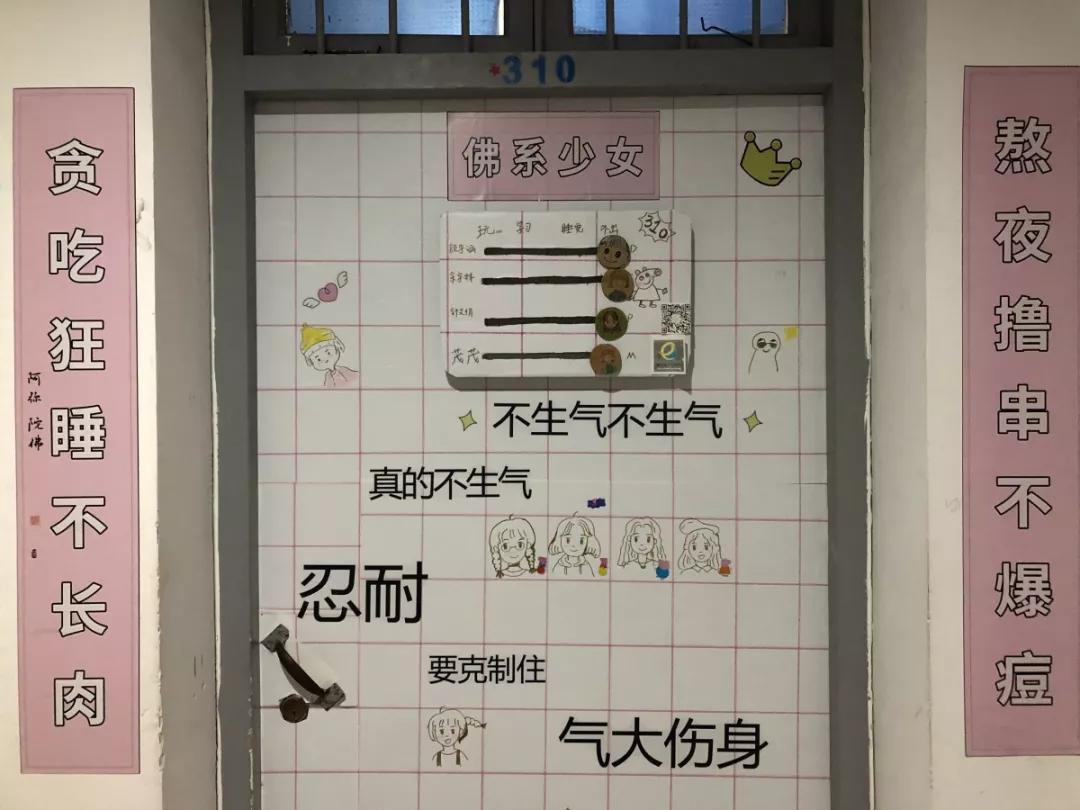 310
佛系少女
熬夜撸串不爆痘
贪吃狂睡不长肉
阿弥陀佛
玩 学习 睡觉 外出
310
茂茂
不生气不生气
真的不生气
忍耐
要克制住
气大伤身